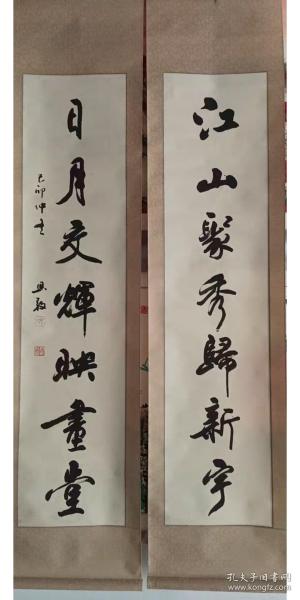 江山聚秀歸新宇
日月交輝映畫堂
己卯仲夏
孔夫子旧书网
www.kongfz.com